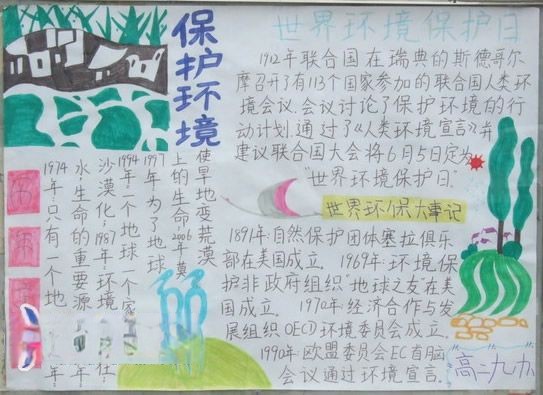 保护环境
世界环境保护日
1912年联合国在瑞典的斯德哥尔
摩召开了有113个国家参加的联合国人类环
境会议.会议讨论了保护环境的行
动计划.通过了《人类环境宣言》并
建议联合国大会将6月5日定为
"世界环境保护日."
世界环保大事记
1891年:自然保护团体塞拉俱乐
部在美国成立. 1969年:环境保
护非政府组织"地球之友"在美
国成立. 1970年:经济合作与发
展组织OECD环境委员会成立.
1990年:欧盟委员会EC首脑
会议通过环境宣言.
使旱地变荒漠
上的生命2006年莫
1997年为了地球
1994年一个地球一个家
沙漠化.1987年环境
水生命的重要源
1974年只有一个地
高二九办